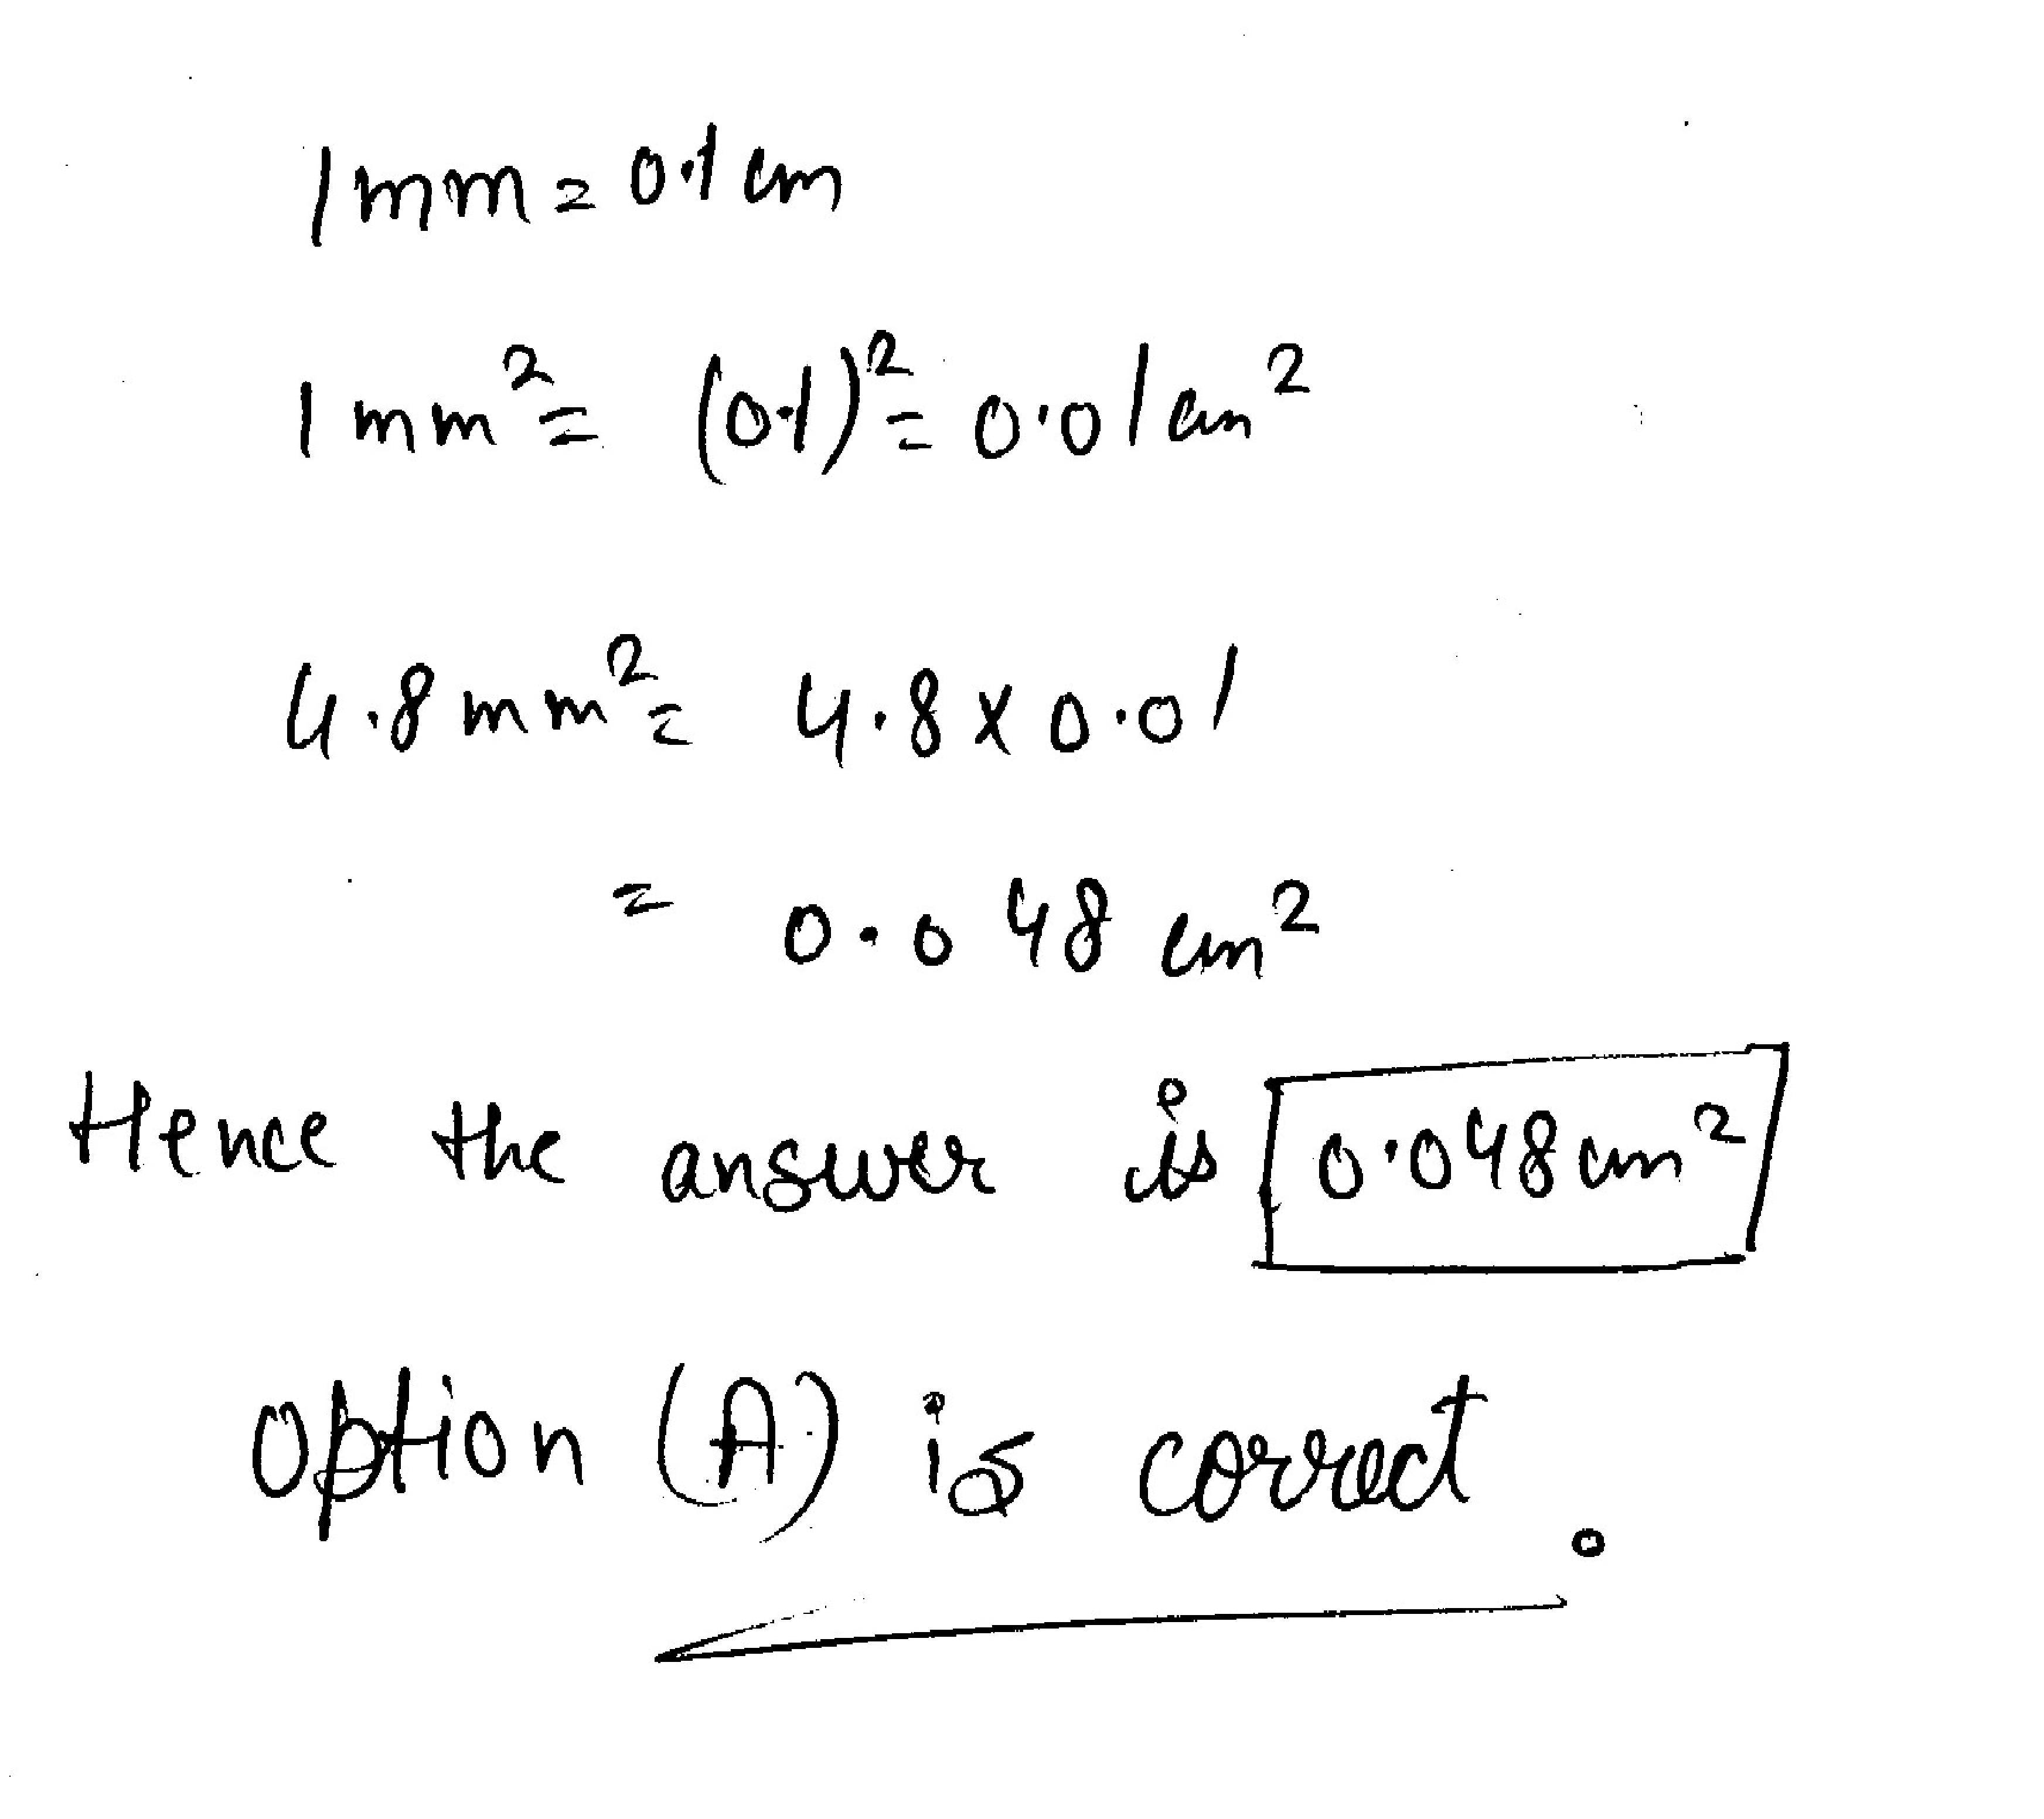 1mm = 0.1cm
1mm² = (0.1)² = 0.01cm²
4.8mm² = 4.8 x 0.01
= 0.048 cm²
Hence the answer is 0.048cm²
option (A) is correct.